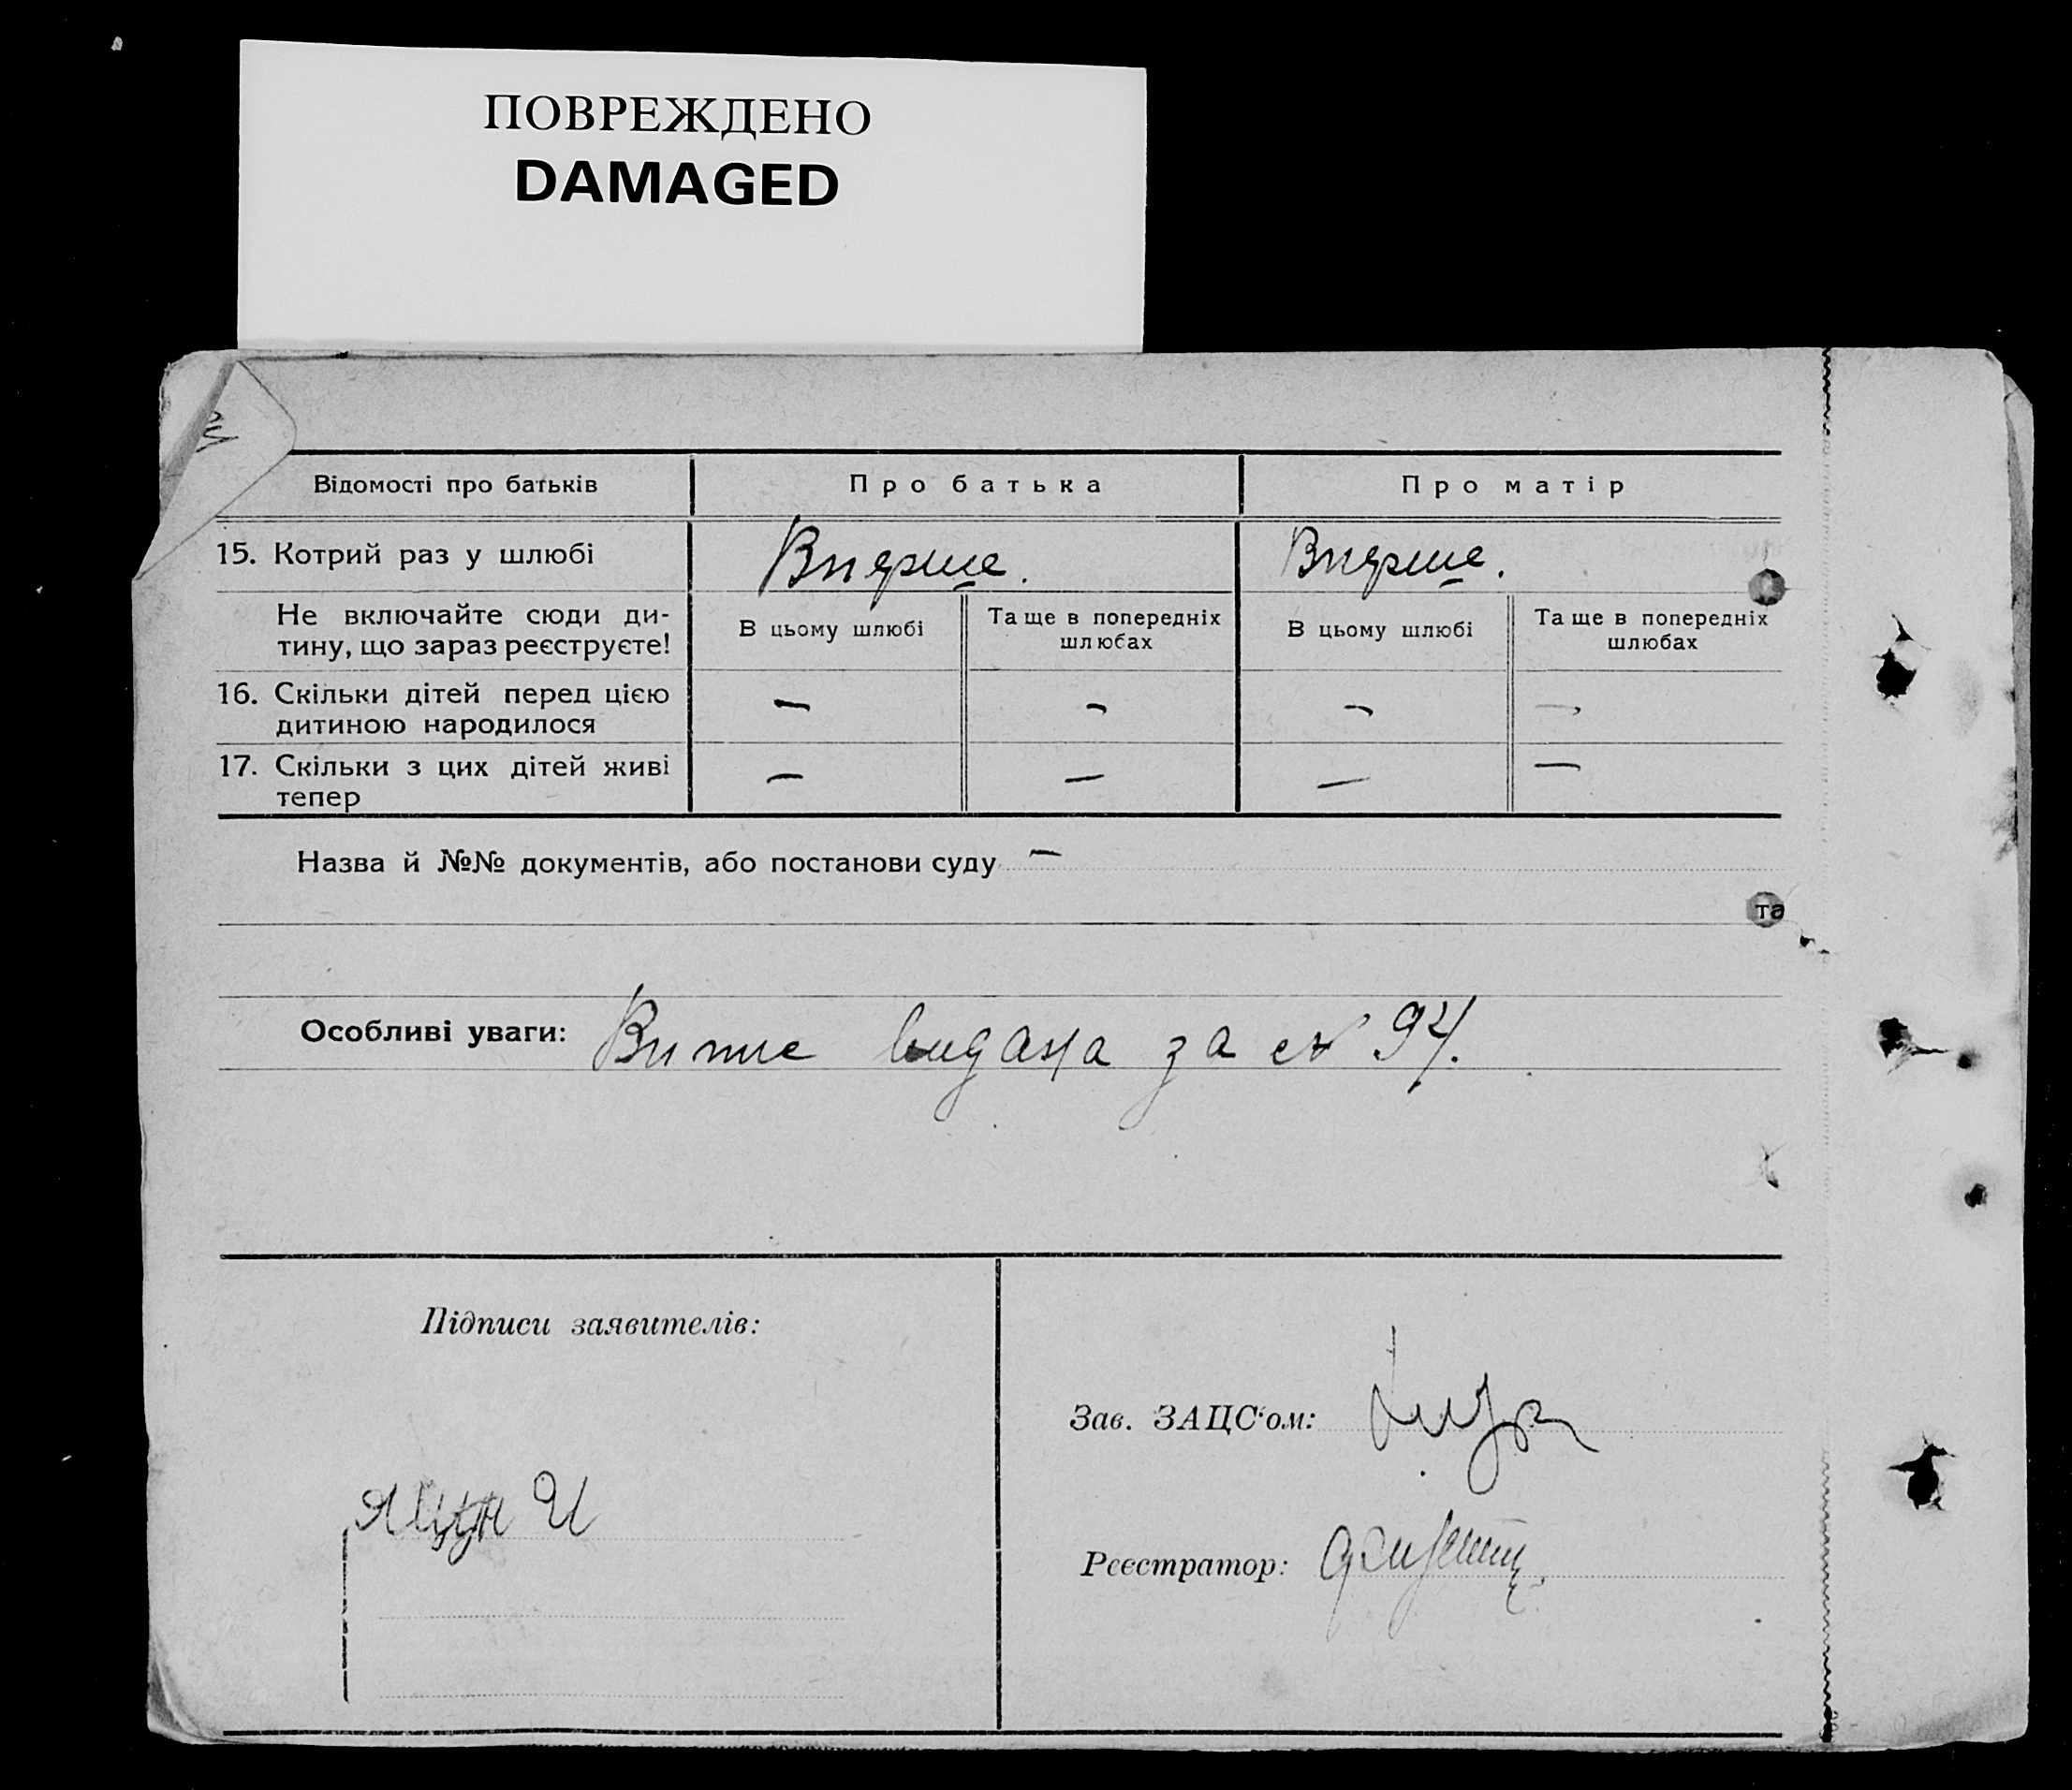 ПОВРЕЖДЕНО
DAMAGED
Відомості про батьків
Про батька
Про матір
15. Котрий раз у шлюбі
Вперше.
Вперше.
Не включайте сюди ди-
тину, що зараз реєструєте!
В цьому шлюбі
Та ще в попередніх
шлюбах
В цьому шлюбі
Та ще в попередніх
шлюбах
16. Скільки дітей перед цією
дитиною народилося
— — — —
17. Скільки з цих дітей живі
тепер
— — — —
Назва й №№ документів, або постанови суду —
та
Особливі уваги: видана за № 94.
Підписи заявителів:
Зав. ЗАЦС'ом:
Реєстратор: